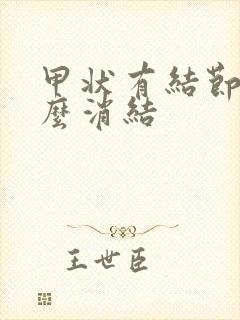 甲状有結節
麼消結
王世臣